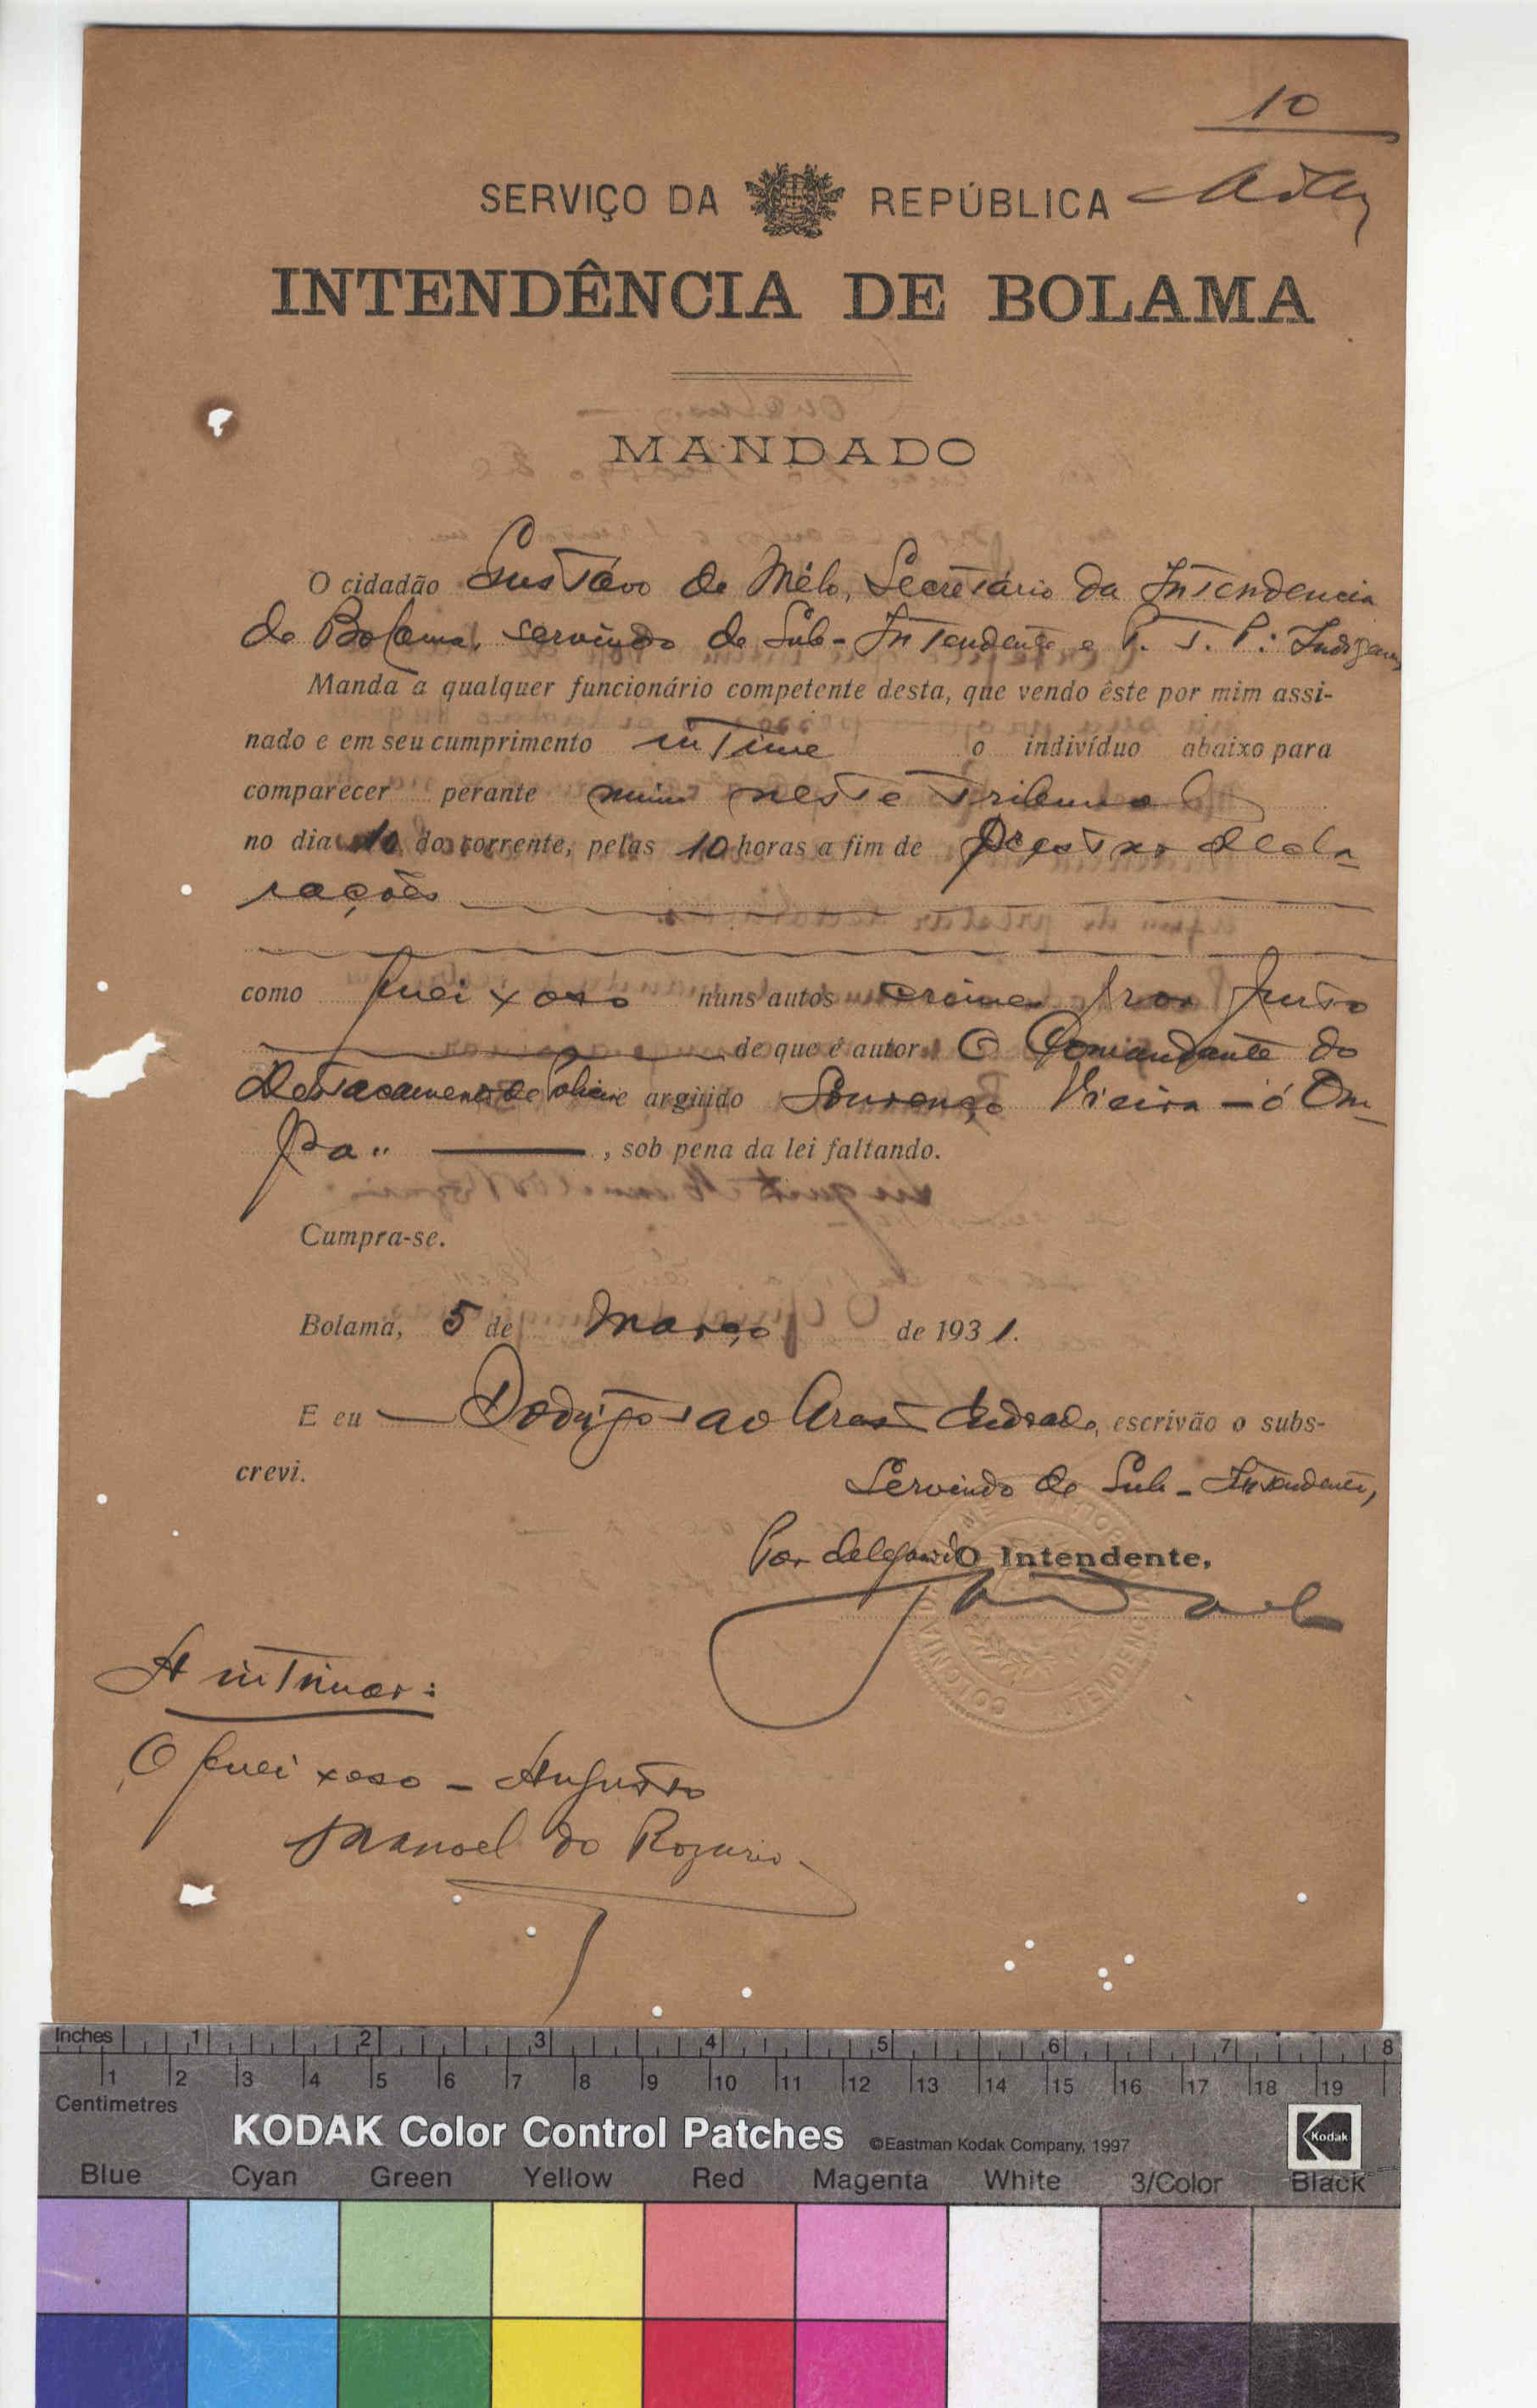 10
SERVIÇO DA REPÚBLICA
INTENDÊNCIA DE BOLAMA
MANDADO
O cidadão Gustávo de Mélo, Secretário da Intendencia
de Bolama, servindo de Sub-Intendente e P. T. P. Indigenas
Manda a qualquer funcionário competente desta, que vendo êste por mim assi-
nado e em seu cumprimento intime o indivíduo abaixo para
comparecer perante mim neste Tribunal
no dia 10 do corrente, pelas 10 horas a fim de prestar decla-
rações
como queixoso nuns autos crimes por furto
de que é autor O Comandante do
Destacamento de Policia e argüido Lourenço Vieira - ó Om-
pa" , sob pena da lei faltando.
Cumpra-se.
Bolama, 5 de Março de 1931.
E eu Andrade, escrivão o subs-
crevi.
Servindo de Sub-Intendente,
Por delegação O Intendente,
COLONIA DA INTENDENCIA BOLAMA
A intimar:
O queixoso - Augusto
Manoel do Rozario
Inches 1 2 3 4 5 6 7 8
1 2 3 4 5 6 7 8 9 10 11 12 13 14 15 16 17 18 19
Centimetres
KODAK Color Control Patches ©Eastman Kodak Company, 1997 Kodak
Blue Cyan Green Yellow Red Magenta White 3/Color Black